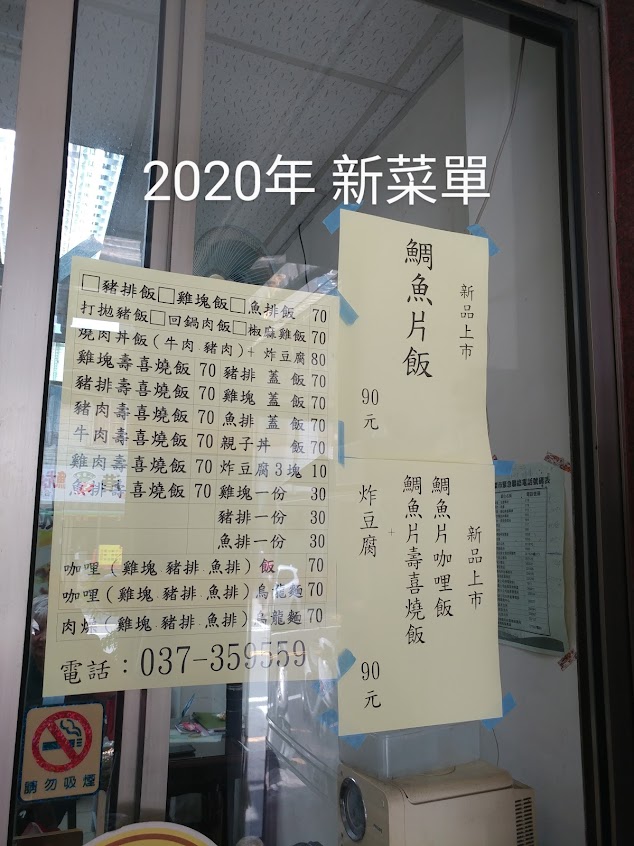 2020年 新菜單
□豬排飯□雞塊飯□魚排飯 70
打拋豬飯□回鍋肉飯□椒麻雞飯 70
燒肉丼飯(牛肉 豬肉)+ 炸豆腐 80
雞塊壽喜燒飯 70 豬排 蓋 飯 70
豬排壽喜燒飯 70 雞塊 蓋 飯 70
豬肉壽喜燒飯 70 魚排 蓋 飯 70
牛肉壽喜燒飯 70 親子丼 飯 70
雞肉壽喜燒飯 70 炸豆腐3塊 10
魚排壽喜燒飯 70 雞塊一份 30
豬排一份 30
魚排一份 30
咖哩(雞塊 豬排 魚排) 飯 70
咖哩(雞塊 豬排 魚排) 烏龍麵 70
肉燥(雞塊 豬排 魚排) 烏龍麵 70
電話：037-359559
新品上市
鯛魚片飯
90元
新品上市
鯛魚片咖哩飯
鯛魚片壽喜燒飯
+
炸豆腐
90元
請勿吸煙